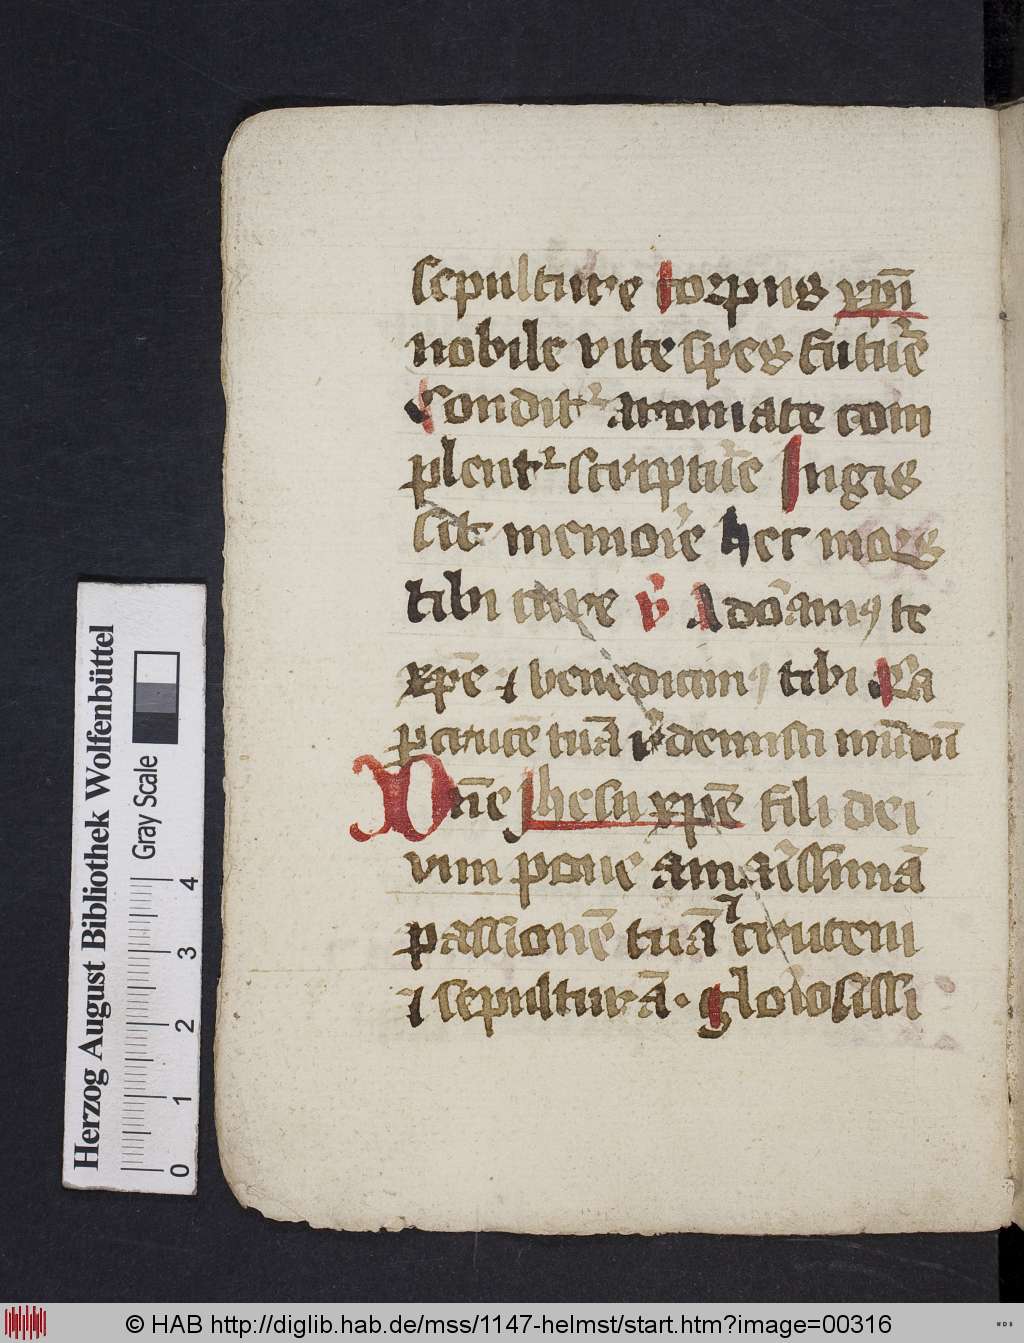 sepulture corpus xpī
nobile vite spes futur̄e
Condit᷑ aromate com
plent᷑ scriptur̄e Iugis
sit memor̄ie hec mors
tibi cure v̄ Adorāmꝰ te
xpē ⁊ benedicimꝰ tibi Qa
ꝑ crucē tuā rͥdemisti mūdū
Dn̄e Ihesu xpē fili dei
viui pone amarͥssimā
passionē tuā ⁊ crucem
⁊ sepulturā · gloͥosissi
Herzog August Bibliothek Wolfenbüttel
Gray Scale
0 1 2 3 4
© HAB http://diglib.hab.de/mss/1147-helmst/start.htm?image=00316
WDB